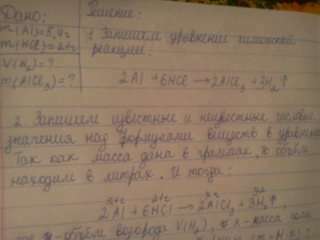 Дано:
m(Al)=5,4г
m(HCl)=24г
V(H₂)=?
m(AlCl₃)=?
Решение:
1 Запишем уравнение химической
реакции:
2Al + 6HCl → 2AlCl₃ + 3H₂↑
2. Запишем известные и неизвестные числовые
значения над формулами веществ в уравнении
Так как масса дана в граммах, то объём
находим в литрах. И тогда:
2Al + 6HCl → 2AlCl₃ + 3H₂↑
объём водорода V(H₂), масса соли